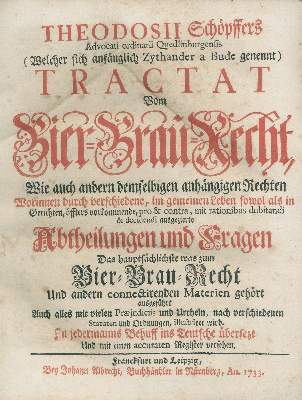 THEODOSII Schöpffers
Advocati ordinarii Quedlinburgensis
(Welcher sich anfänglich Zythander a Bude genennt)
TRACTAT
Vom
Bier-Brau-Recht,
Wie auch andern demselbigen anhängigen Rechten
Worinnen durch verschiedene, im gemeinen Leben sowol als in
Gerichten, öffters vorkommende, pro & contra, mit rationibus dubitandi
& decidendi ausgezierte
Abtheilungen und Fragen
Das hauptsächlichste was zum
Bier-Brau-Recht
Und andern connectirenden Materien gehört
ausgeführt
Auch alles mit vielen Præjudiciis und Urtheln, nach verschiedenen
Statuten und Ordnungen, illustrirt wird.
Zu jedermanns Behuff ins Teutsche übersezt
Und mit einen accuraten Register versehen.
Franckfurt und Leipzig,
Bey Johann Albrecht, Buchhändler in Nürnberg, An. 1733.